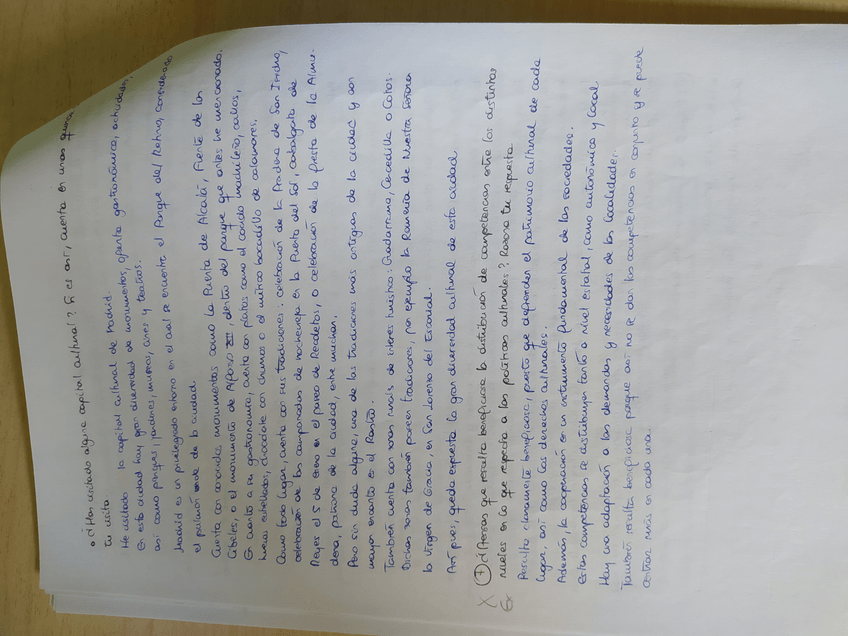 • ¿Has visitado alguna capital cultural? Si es así, cuenta en unas
tu visita
He visitado la capital cultural de Madrid.
En esta ciudad hay gran diversidad de monumentos, oferta gastronómica, actividades,
así como parques, jardines, museos, cines y teatros.
Madrid es un privilegiado entorno en el cual se encuentra el Parque del Retiro, considerado
el pulmón verde de la ciudad.
Cuenta con conocidos monumentos como la Puerta de Alcalá, Fuente de los
Cibeles, o el monumento de Alfonso XII, dentro del parque que antes he mencionado.
En cuanto a su gastronomía, cuenta con platos como el cocido madrileño, callos,
huevos estrellados, chocolate con churros o el mítico bocadillo de calamares.
Como todo lugar, cuenta con sus tradiciones: celebración de la Pradera de San Isidro,
celebración de las campanadas de nochevieja en la Puerta del Sol, cabalgata de
Reyes el 5 de enero en el paseo de Recoletos, o celebración de la fiesta de la Almu-
dena, patrona de la ciudad, entre muchas.
Pero sin duda alguna, una de las tradiciones más antiguas de la ciudad y con
mayor encanto es el Rastro.
También cuenta con zonas rurales de interés turístico: Guadarrama, Cercedilla o Cotos.
Dichas zonas también poseen tradiciones, por ejemplo la Romería de Nuestra Señora
la Virgen de Gracia, en San Lorenzo del Escorial.
Así pues, queda expuesta la gran diversidad cultural de esta ciudad.
X 7 ¿Piensas que resulta beneficiosa la distribución de competencias entre los distintos
niveles en lo que respecta a las políticas culturales? Razona tu respuesta
Resulta claramente beneficiosa, puesto que defienden el patrimonio cultural de cada
lugar, así como los derechos culturales.
Además, la cooperación es un instrumento fundamental de las sociedades.
Estas competencias se distribuyen tanto a nivel estatal, como autonómico y local
Hay una adaptación a las demandas y necesidades de las localidades.
También resulta beneficiosa porque así no se dan las competencias en conjunto y se puede
centrar más en cada una.